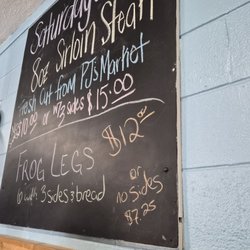 Saturday
8oz Sirloin Steak
Fresh Cut from PJ's Market
$10.00 or w/3 sides $15.00
Frog Legs $12.00
10 with 3 sides & bread
or
no sides
$7.25